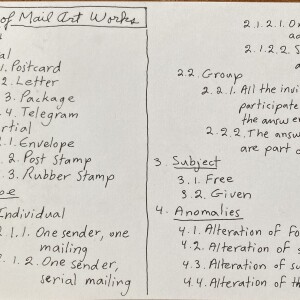 of Mail Art Works
1. Postcard
2. Letter
3. Package
4. Telegram
1. Envelope
2. Post Stamp
3. Rubber Stamp
Individual
1.1. One sender, one
mailing
1.2. One sender,
serial mailing
2.1.2.1. On
2.1.2.2. S
2.2. Group
2.2.1. All the in
participate
the answe
2.2.2. The answ
are part o
3. Subject
3.1. Free
3.2. Given
4. Anomalies
4.1. Alteration of fo
4.2. Alteration of s
4.3. Alteration of so
4.4. Alteration of th